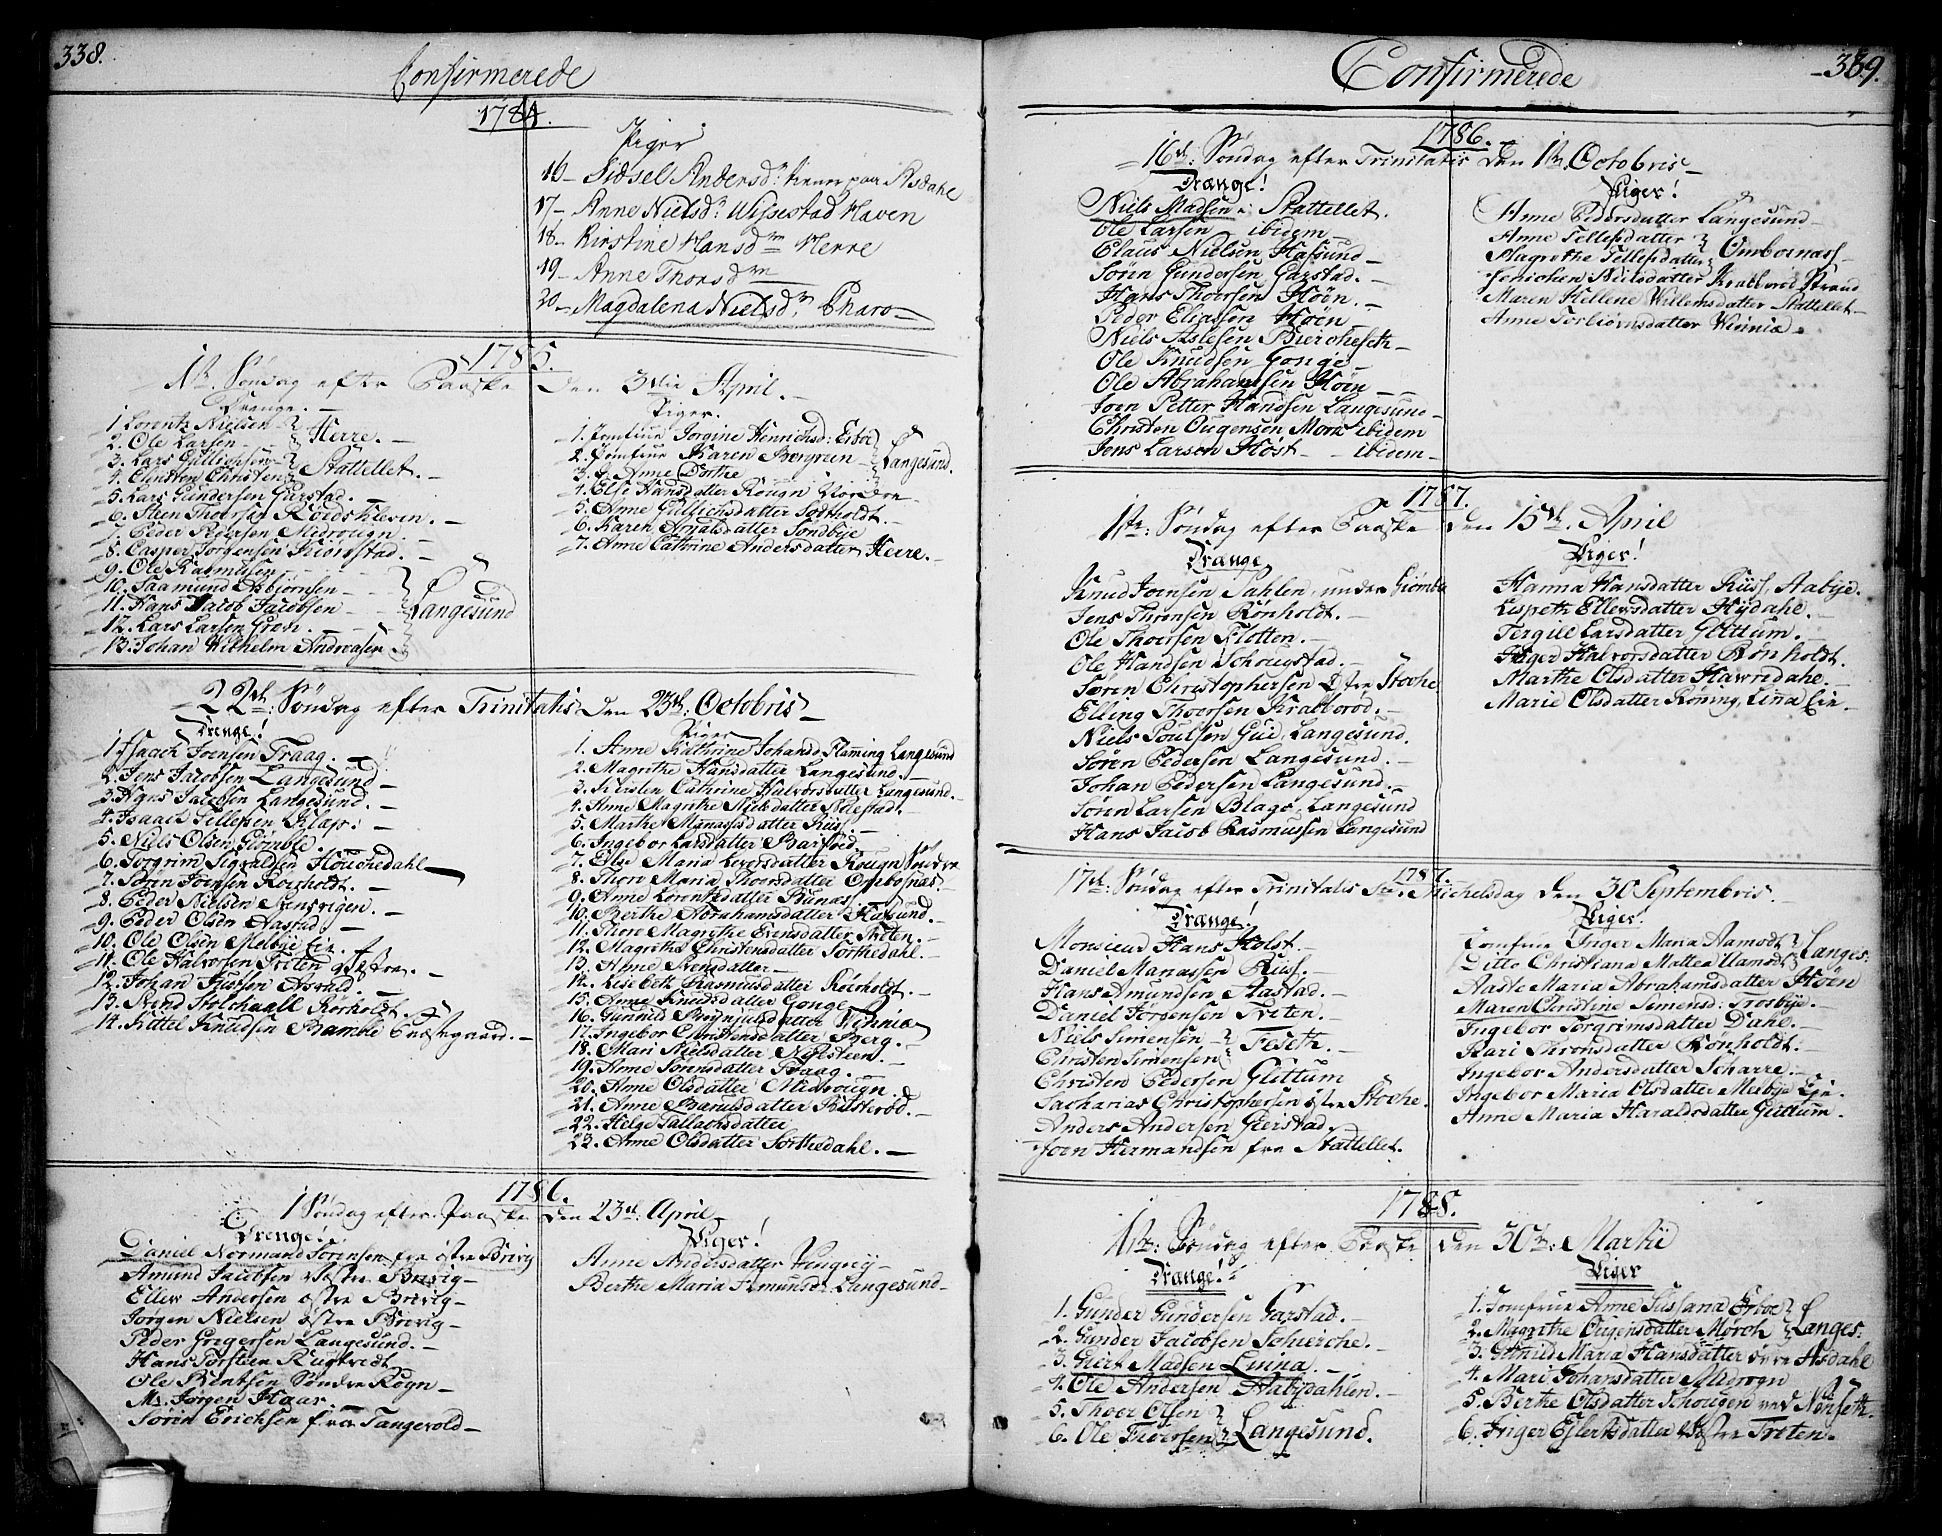 338.
Confirmerede
1784.
Piger
16 - Sidsel Andersd: tiener paa Asdahl
17 - Anne Nielsd: Wissestad Haven
18 - Kirstine Hansd: Herre
19 - Anne Thorsd:
20 - Magdalena Nielsd: Tharo
1785.
1te Søndag efter Paaske den 3die April.
Drenge.
1 Lorentz Nielsen
2. Ole Larsen - Herre.
3. Lars Gullichsen
4. Christen Christen - Stattellet.
5. Lars Gundersen Garstad.
6. Steen Thoersen Røidskleven.
7. Peder Pedersen Midrougn.
8. Casper Jørgensen
9. Ole Rasmusen
10. Saamund Asbjørnsen
11. Hans Jacob Jacobsen - Langesund
12. Lars Larsen Grøn
13. Johan Wilhelm Andreasen
Piger.
1. Jomfrue Jorgine Henrichsd: Esboe
2. Jomfrue Karen Borgreen - Langesund.
3. Anne Dorthe
4. Else Hansdatter Rougn Nordre
5. Anne Gullichsdatter Sortholdt.
6. Karen Arnalsdatter Sondbye
7. Anne Cathrine Andersdatter Herre.
22de Søndag efter Trinitatis den 23de Octobris
Drenge!
1. Isaach Joensen Traag.
2. Jens Jacobsen Langesund
3. Hans Jacobsen Langesund.
4. Isaach Tellefsen Klap:
5. Niels Olsen Giømble.
6. Torgrim Sigvaldsen Houchedahl
7. Søren Joensen Rorholdt.
8. Peder Nielsen Stensrigen.
9. Peder Olsen Aastad
10. Ole Olsen Melbye Eie.
11. Ole Halvorsen Treten Vestre.
12. Johan Justsen Asvald.
13. Svend Stolchaall Rørholdt.
14. Kittel Knudsen Bamble Præstegaard.
Piger
1. Anne Kathrine Johansd: Flamming Langesund
2. Magrethe Hansdatter Langesund.
3. Kiersten Cathrine Halvorsdatter Langesund.
4. Anne Magrethe Nielsdatter Nilestad.
5. Marthe Manassesdatter Riis.
6. Ingebor Larsdatter Barføed.
7. Else Maria Levorsdatter Rougn Søndre
8. Thore Maria Thoersdatter Ombosnæs.
9. Anne Lorentzdatter Bunæs
10. Berthe Abrahamsdatter Hafsund.
11. Thore Magrethe Evensdatter Treten.
12. Magrethe Christensdatter Sorthedahl.
13. Anne Svensdatter
14. Lisebeth Rasmusdatter Rørholdt.
15. Anne Knudsdatter Gonge
16. Gunnild Brynjulsdatter Winniæ
17. Ingebor Christensdatter Berg.
18. Mari Nielsdatter Nehlsteen.
19. Anne Sørensdatter Traag.
20. Anne Olsdatter Midrougn.
21. Anne Barulsdatter Busterød.
22. Helge Tallaorsdatter
23. Anne Olsdatter Sorthedahl.
1786.
1 Søndag efter Paaske den 23de April
Drenge!
Daniel Normand Sørensen fra østre Brevig
Amund Jacobsen Vestre Brevig
Eller Andersen østre Brevig
Jørgen Nielsen østre Brevig
Peder Gregersen Langesund.
Hans Torsten Rugtvedt
Ole Bentsen Søndre Rogn
Mr. Jørgen Haar.
Søren Erichsen fra Tangevold
Piger!
Anne Andersdatter
Berthe Maria Amundsd: Langesund
389.
Confirmerede
1786.
16de: Søndag efter Trinitatis den 1te Octobris
Drænge!
Niels Madsen i Stattellet.
Ole Larsen - ibidem
Claus Nielsen Hafsund
Sørin Gundersen Garstad.
Hans Thoersen Høen.
Peder Eliassen Høen
Niels Aslesen Bierchesett
Ole Knudsen Gonge
Ole Abrahamsen Høen
Joen Petter Handsen Langesund
Christen Ougensen Mork ibidem
Jens Larsen Høst - ibidem
Piger!
Anne Pedersdatter Langesund
Anne Tellefsdatter
Magrethe Tellefsdatter - Ombornæss
Jenichen Nielsdatter Krabberød Strand
Maren Hellene Willemsdatter Stattellet
Anne Torbiørnsdatter Winniæ
1787.
1te: Søndag efter Paaske den 15de April
Drænge
Knud Joensen Dahlen, under Giømble
Jens Thronsen Rønholdt.
Ole Thoersen Flotten.
Ole Handsen Schougstad.
Søren Christophersen østre Stoche
Elling Thoersen Krabberød.
Niels Poulsen Gud, Langesund.
Søren Pedersen Langesund.
Johan Pedersen Langesund.
Søren Larsen Blagø. Langesund
Hans Jacob Rasmussen Langesund
Piger!
Hanna Hansdatter Riis, Aabye.
Lispeth Ellevsdatter Hydahl.
Tergill Larsdatter Glittum.
Inger Halvorsdatter Rønholdt.
Marthe Olsdatter Hawredahl.
Marie Olsdatter Røning, Lina Eie.
1787.
17de: Søndag efter Trinitatis Sr: Michelsdag den 30 Septembris.
Drænge!
Monsieur Hans Holst.
Daniel Manassen Riis.
Hans Amundsen Aastad.
Daniel Jørgensen Treten.
Niels Simensen
Christen Simensen - Feseth.
Christen Pedersen Glittum
Sacharias Christophersen østre Stoche.
Anders Andersen Gierstad.
Joen Hermandsen fra Stattellet.
Piger!
Jomfrue Inger Maria Aamodt
Ditto Christiana Mattea Aamodt - Langes:
Aaste Maria Abrahamsdatter Høen
Maren Christine Simensd: Trosbye.
Ingebor Torgrimsdatter Dahl.
Kari Thronsdatter Rønholdt.
Ingebor Andersdatter Scharre.
Ingebor Maria Olsdatter Melbye Eie.
Anne Maria Haraldsdatter Glittum.
1788.
1te: Søndag efter Paaske den 30te: Martii
Drænge!
1. Gunder Gundersen Garstad.
2. Gunder Jacobsen Schierche.
3. Giert Madsen Linna.
4. Ole Andersen Aabydahlen.
5. Thoer Olsen
6. Ole Thoersen - Langesund.
Piger
1. Jomfrue Anne Sussana Esboe
2. Magrethe Ougensdatter Mørch - Langes:
3. Gunild Maria Hansdatter øvre Asdahl
4. Mari Johansdatter Midrogn
5. Berthe Olsdatter Schougen ved Nenseth.
6. Inger Eflertsdatter Vestre Treten.